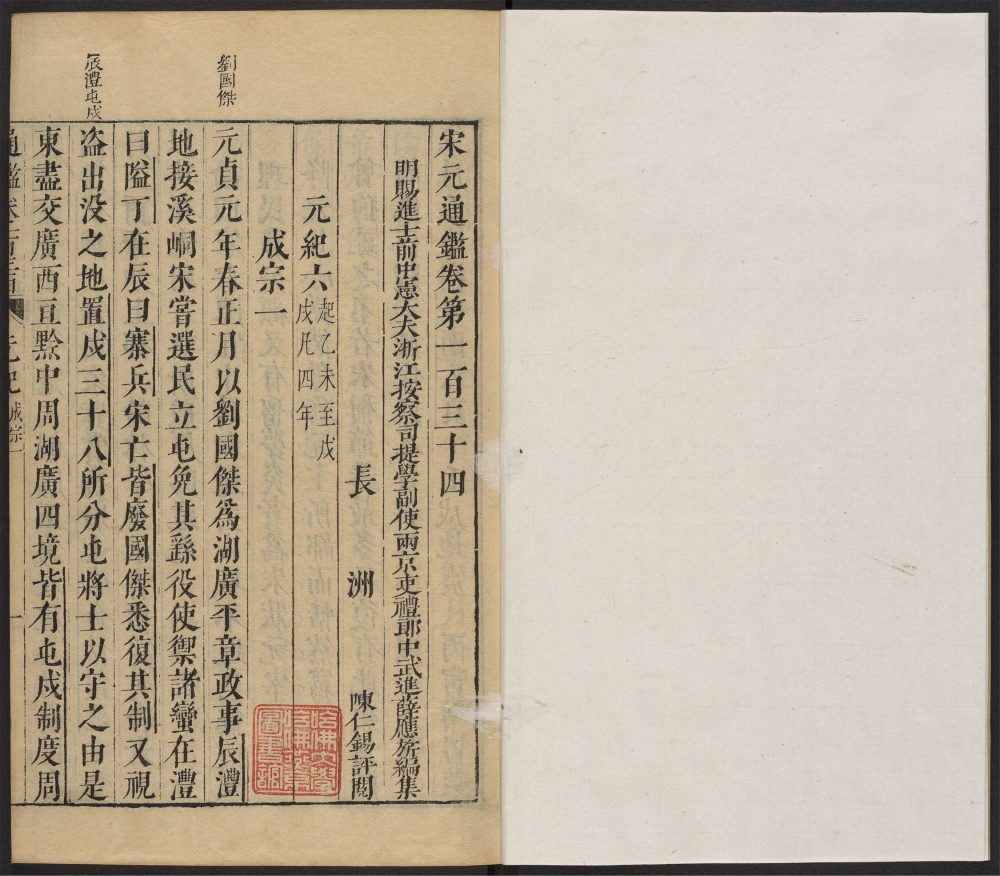 宋元通鑑卷第一百三十四
明賜進士前中憲大夫浙江按察司提學副使兩京吏禮郎中武進薛應旂編集
長洲陳仁錫評閱
元紀六起乙未至戊戌凡四年
成宗一
劉國傑
元貞元年春正月以劉國傑爲湖廣平章政事辰澧
地接溪峒宋嘗選民立屯免其繇役使禦諸蠻在澧
曰隘丁在辰曰寨兵宋亡皆廢國傑悉復其制又視
辰澧屯戍
盜出没之地置戍三十八所分屯將士以守之由是
東盡交廣西亘黔中周湖廣四境皆有屯戍制度周
通鑑卷一百三十四 元紀 成宗一 一
哈佛大學哈佛燕京圖書館